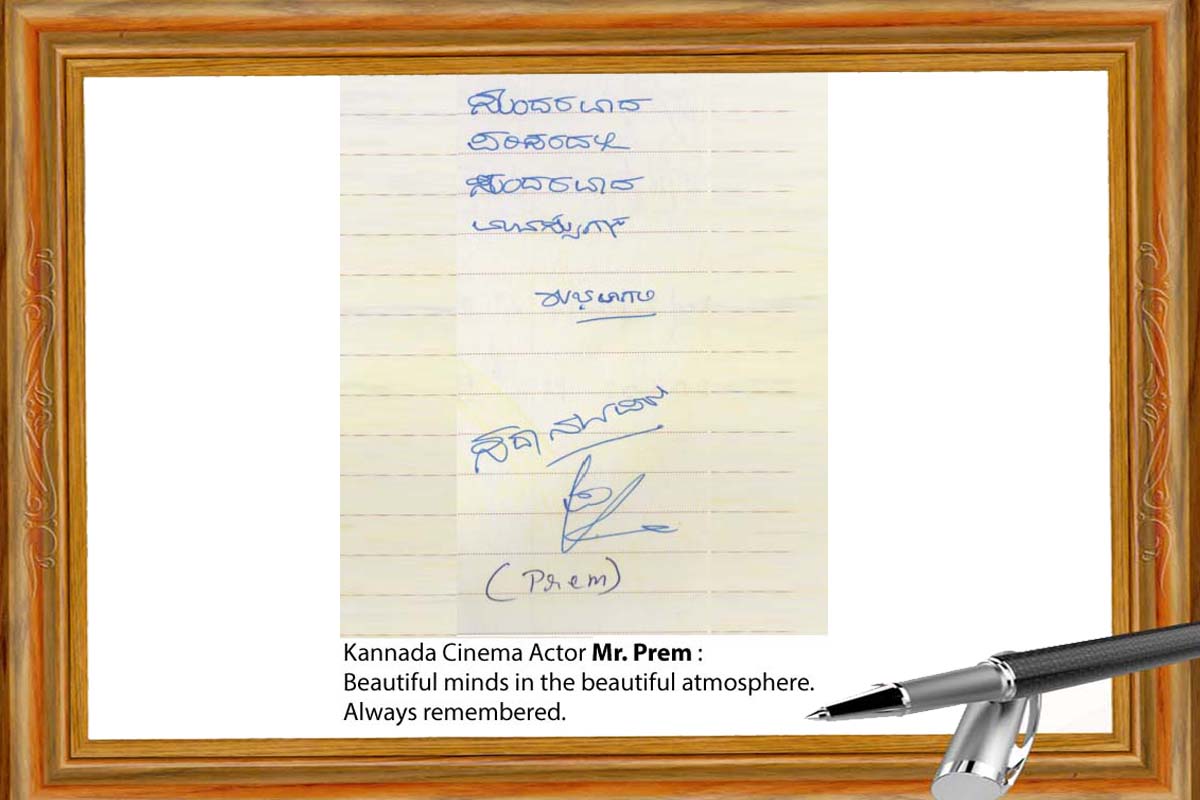 ಸುಂದರವಾದ
ಪರಿಸರದಲ್ಲಿ
ಸುಂದರವಾದ
ಮನಸ್ಸುಗಳ್
ಶುಭವಾಗಲಿ
ಸದಾ
(Prem)
Kannada Cinema Actor Mr. Prem :
Beautiful minds in the beautiful atmosphere.
Always remembered.